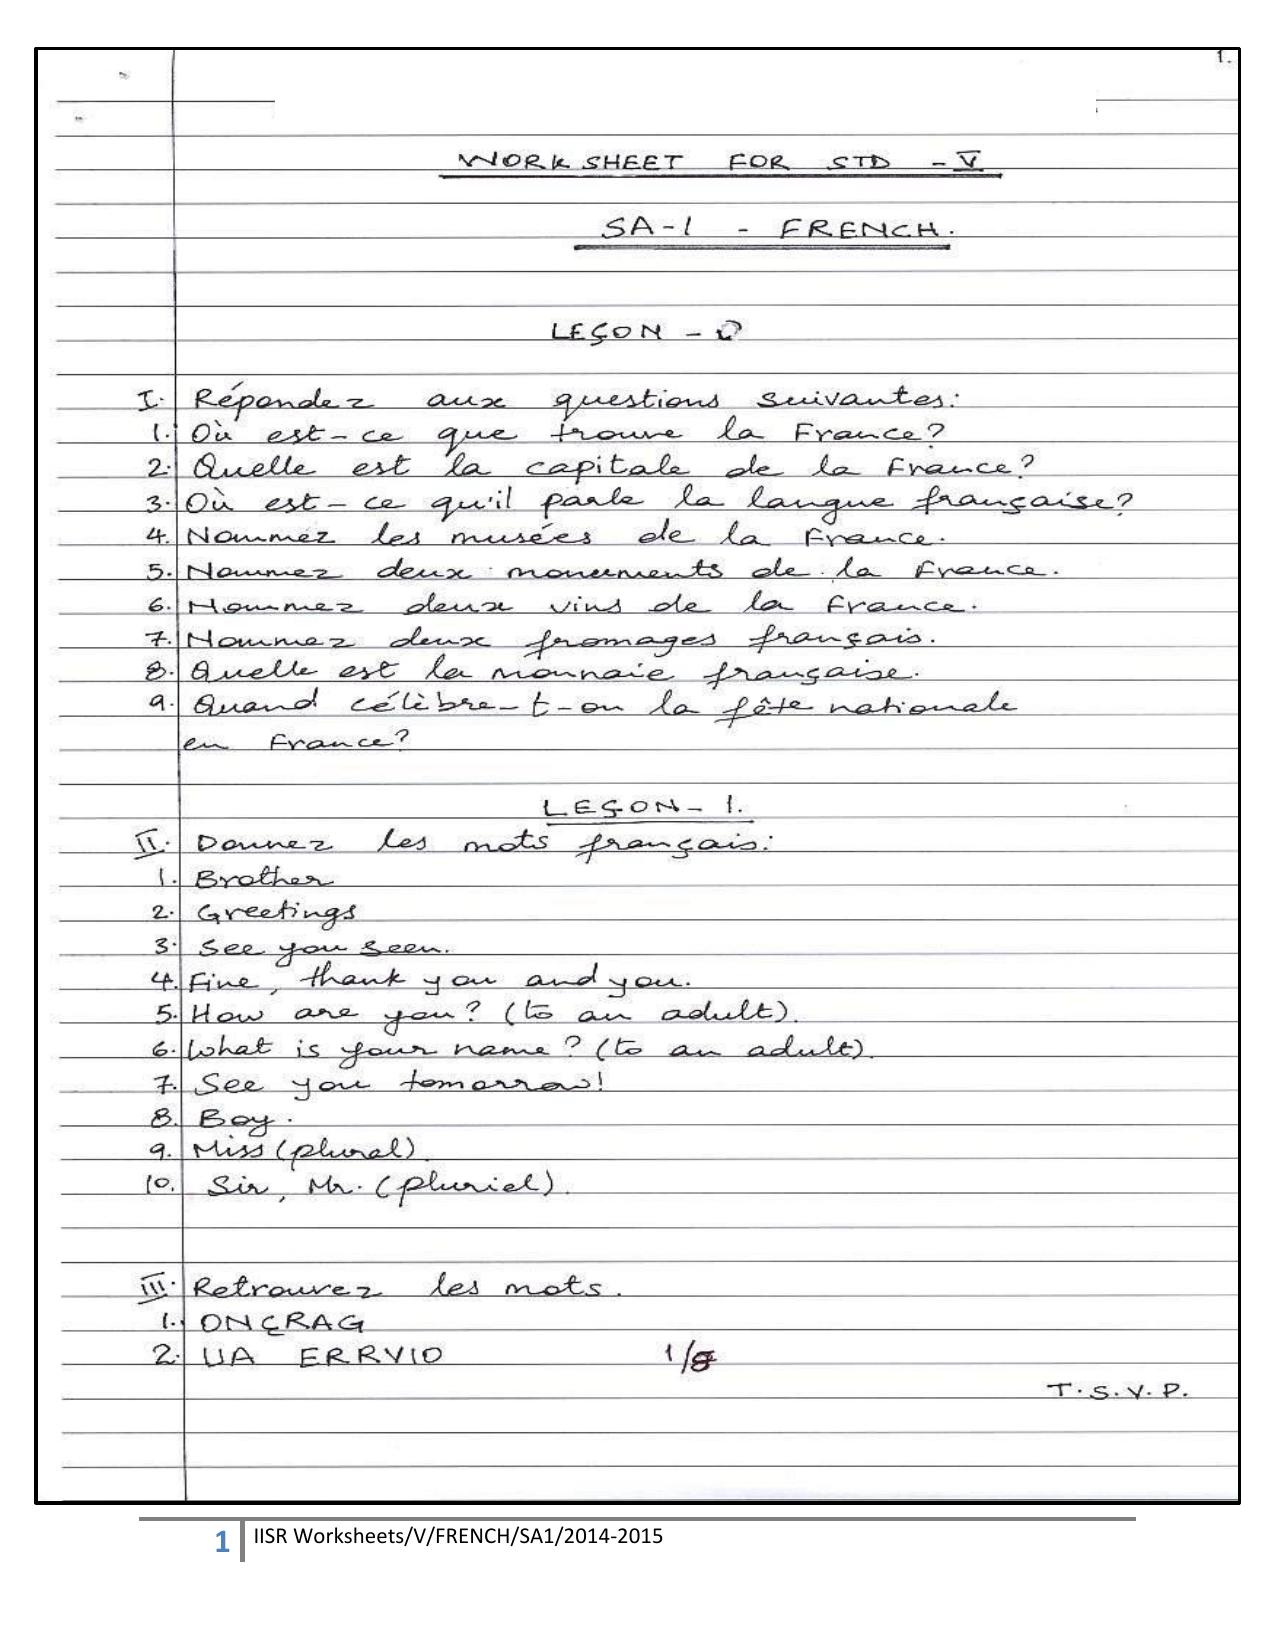 1.
WORKSHEET FOR STD - V
SA-1 - FRENCH.
LEÇON - 0
I. Répondez aux questions suivantes:
1. Où est-ce que trouve la France?
2. Quelle est la capitale de la France?
3. Où est-ce qu'il parle la langue française?
4. Nommez les musées de la France.
5. Nommez deux monuments de la France.
6. Nommez deux vins de la France.
7. Nommez deux fromages français.
8. Quelle est la monnaie française.
9. Quand célèbre-t-on la fête nationale
en France?
LEÇON-1.
II. Donnez les mots français:
1. Brother
2. Greetings
3. See you seen.
4. Fine, thank you and you.
5. How are you? (to an adult).
6. What is your name? (to an adult).
7. See you tomorrow!
8. Boy.
9. Miss (plural)
10. Sir, Mr. (pluriel).
III. Retrouvez les mots.
1. ONÇRAG
2. UA ERRVIO
1/8
T.S.V.P.
1 IISR Worksheets/V/FRENCH/SA1/2014-2015